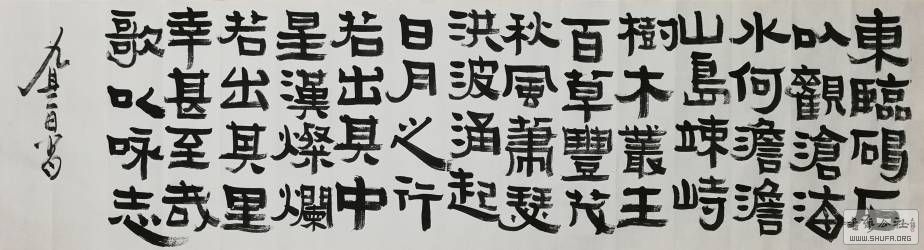 東臨碣石
以觀滄海
水何澹澹
山島竦峙
樹木叢生
百草豐茂
秋風蕭瑟
洪波涌起
日月之行
若出其中
星漢燦爛
若出其里
幸甚至哉
歌以咏志
WWW.SHUFA.ORG